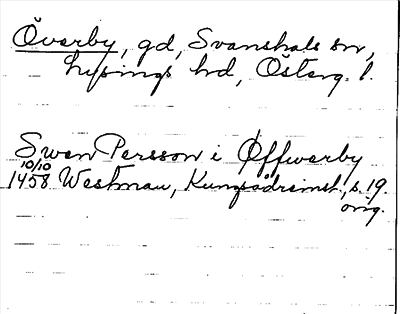 Överby, gd, Svanshals sn,
Lysings hd, Österg. l.
Swen Persson i Øffwerby
10/10
1458 Westman, Kungsådreinst., s. 19
orig.